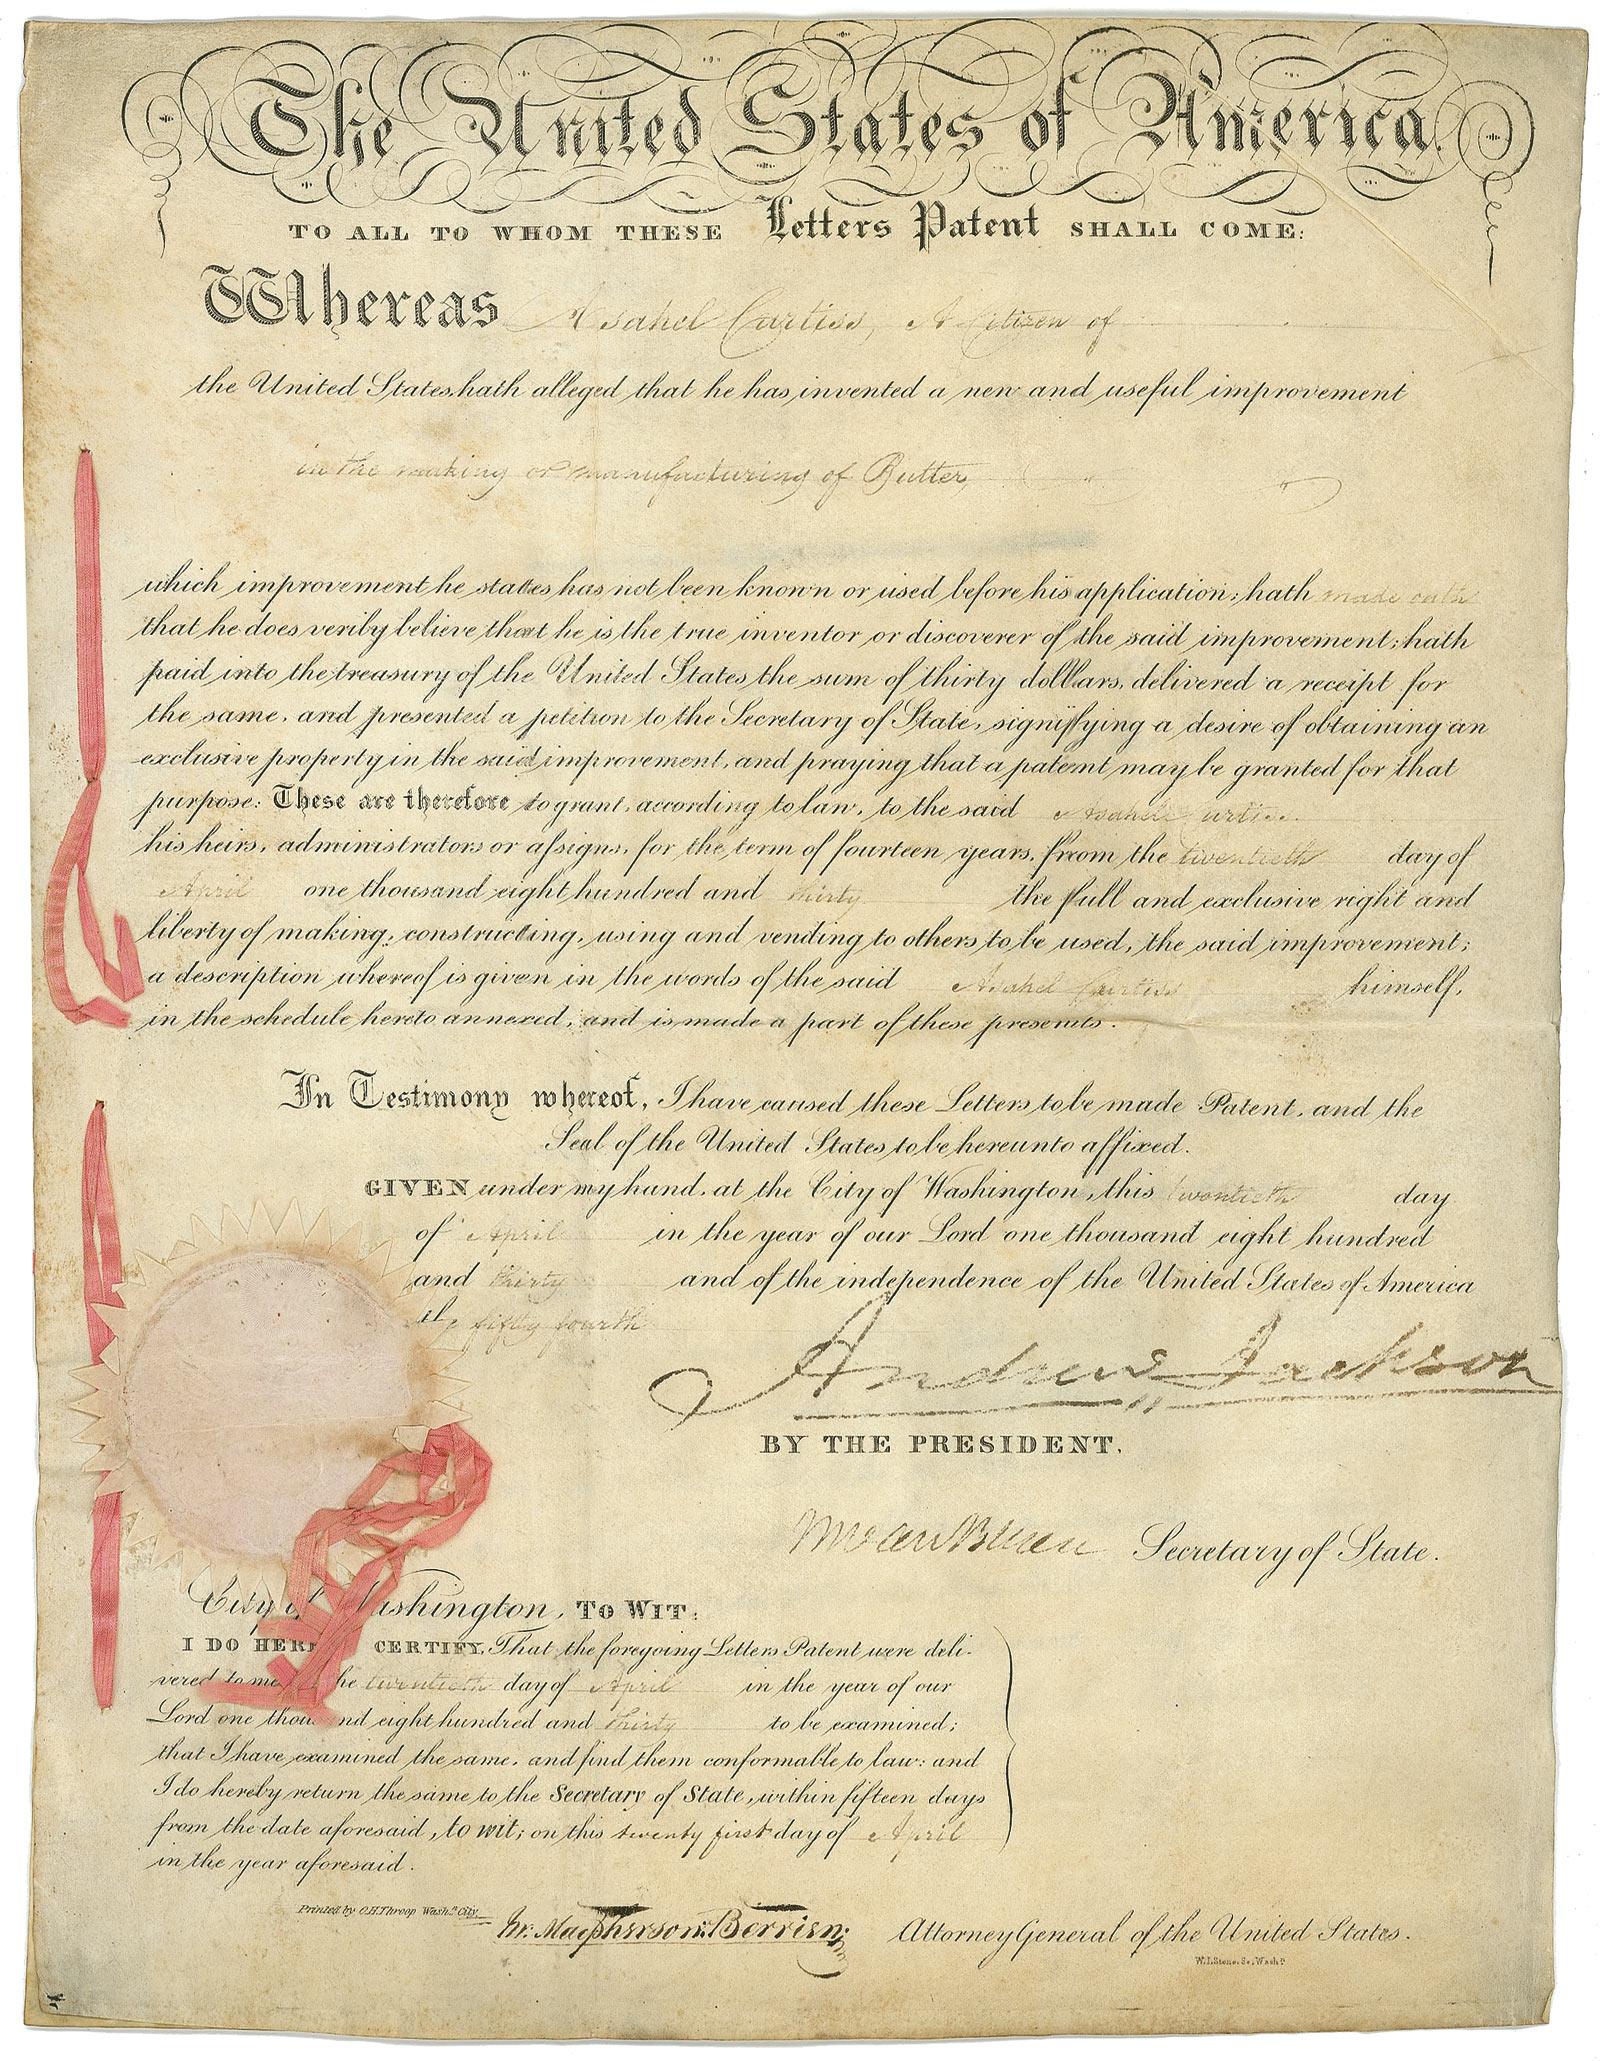 The United States of America.
TO ALL TO WHOM THESE Letters Patent SHALL COME:
Whereas Asahel Curtiss, A Citizen of
the United States, hath alleged that he has invented a new and useful improvement
in the making or manufacturing of Butter,
which improvement he states has not been known or used before his application; hath made oath
that he does verily believe that he is the true inventor or discoverer of the said improvement; hath
paid into the treasury of the United States the sum of thirty dollars, delivered a receipt for
the same, and presented a petition to the Secretary of State, signifying a desire of obtaining an
exclusive property in the said improvement, and praying that a patent may be granted for that
purpose: These are therefore to grant, according to law, to the said Asahel Curtiss
his heirs, administrators or assigns, for the term of fourteen years, from the twentieth day of
April one thousand eight hundred and thirty the full and exclusive right and
liberty of making, constructing, using and vending to others to be used, the said improvement;
a description whereof is given in the words of the said Asahel Curtiss himself,
in the schedule hereto annexed, and is made a part of these presents.
In Testimony whereof, I have caused these Letters to be made Patent, and the
Seal of the United States to be hereunto affixed.
GIVEN under my hand, at the City of Washington, this twentieth day
of April in the year of our Lord one thousand eight hundred
and thirty and of the independence of the United States of America
the fifty fourth
Andrew Jackson
BY THE PRESIDENT.
M Van Buren Secretary of State.
City of Washington, TO WIT:
I DO HEREBY CERTIFY, That the foregoing Letters Patent were deli-
vered to me on the twentieth day of April in the year of our
Lord one thousand eight hundred and thirty to be examined;
that I have examined the same, and find them conformable to law: and
I do hereby return the same to the Secretary of State, within fifteen days
from the date aforesaid, to wit; on this twenty first day of April
in the year aforesaid.
Printed by O.H. Throop Washn. City.
Jn: MacPherson Berrien: Attorney General of the United States.
W.I. Stone. Sc. Washn.